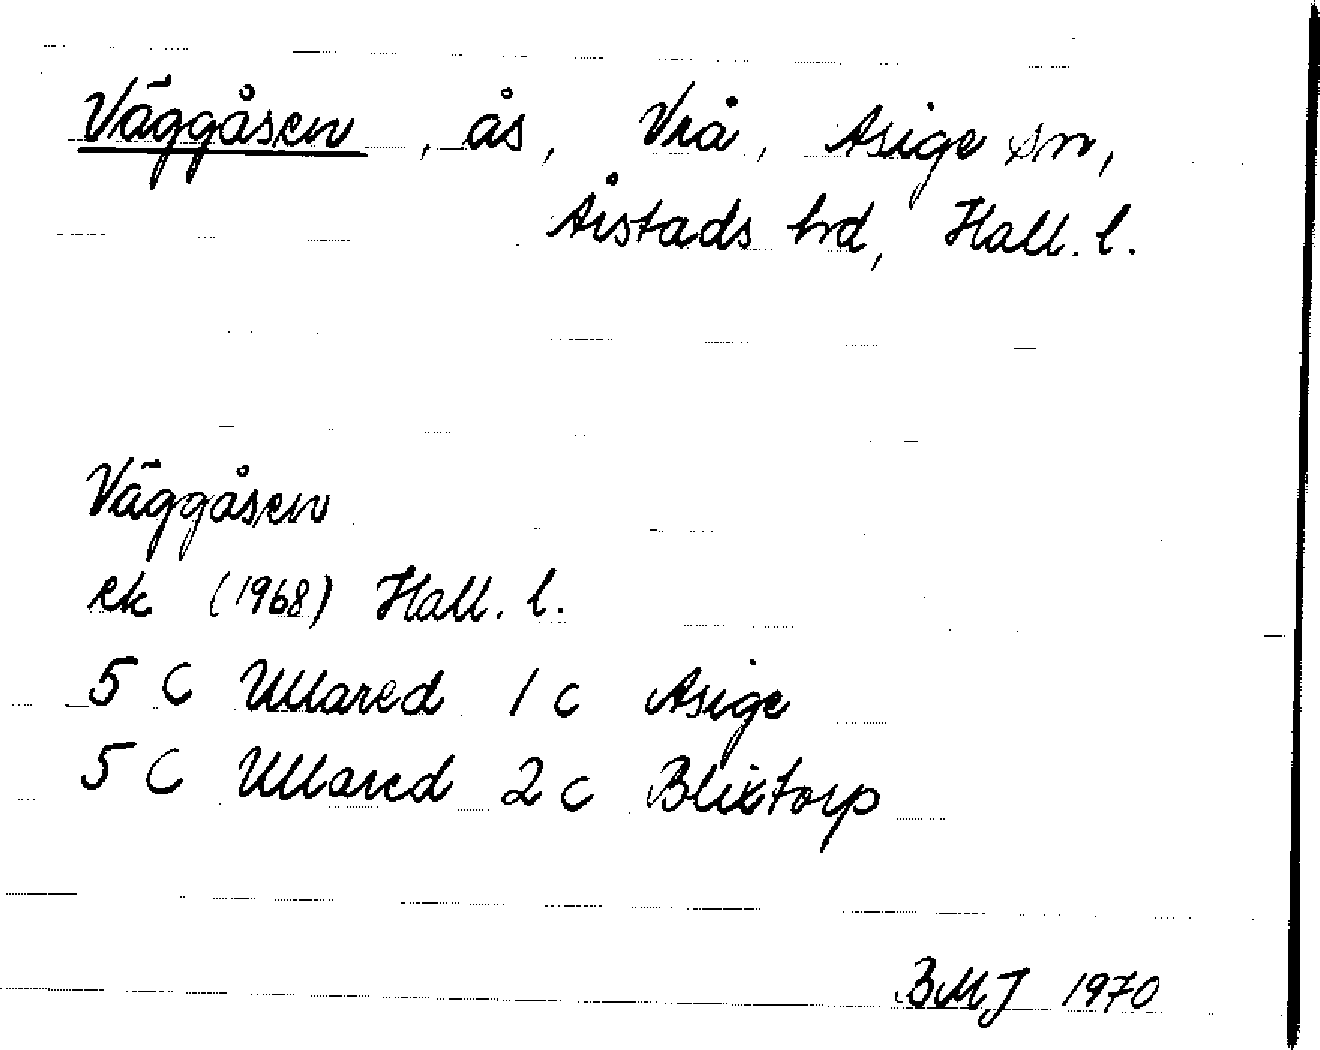 Väggåsen, ås, Vrå, Asige sn,
Årstads hd, Hall. l.
Väggåsen
ek (1968) Hall. l.
5 C Ullared 1 c Asige
5 C Ullared 2 c Blixtorp
BMJ 1970